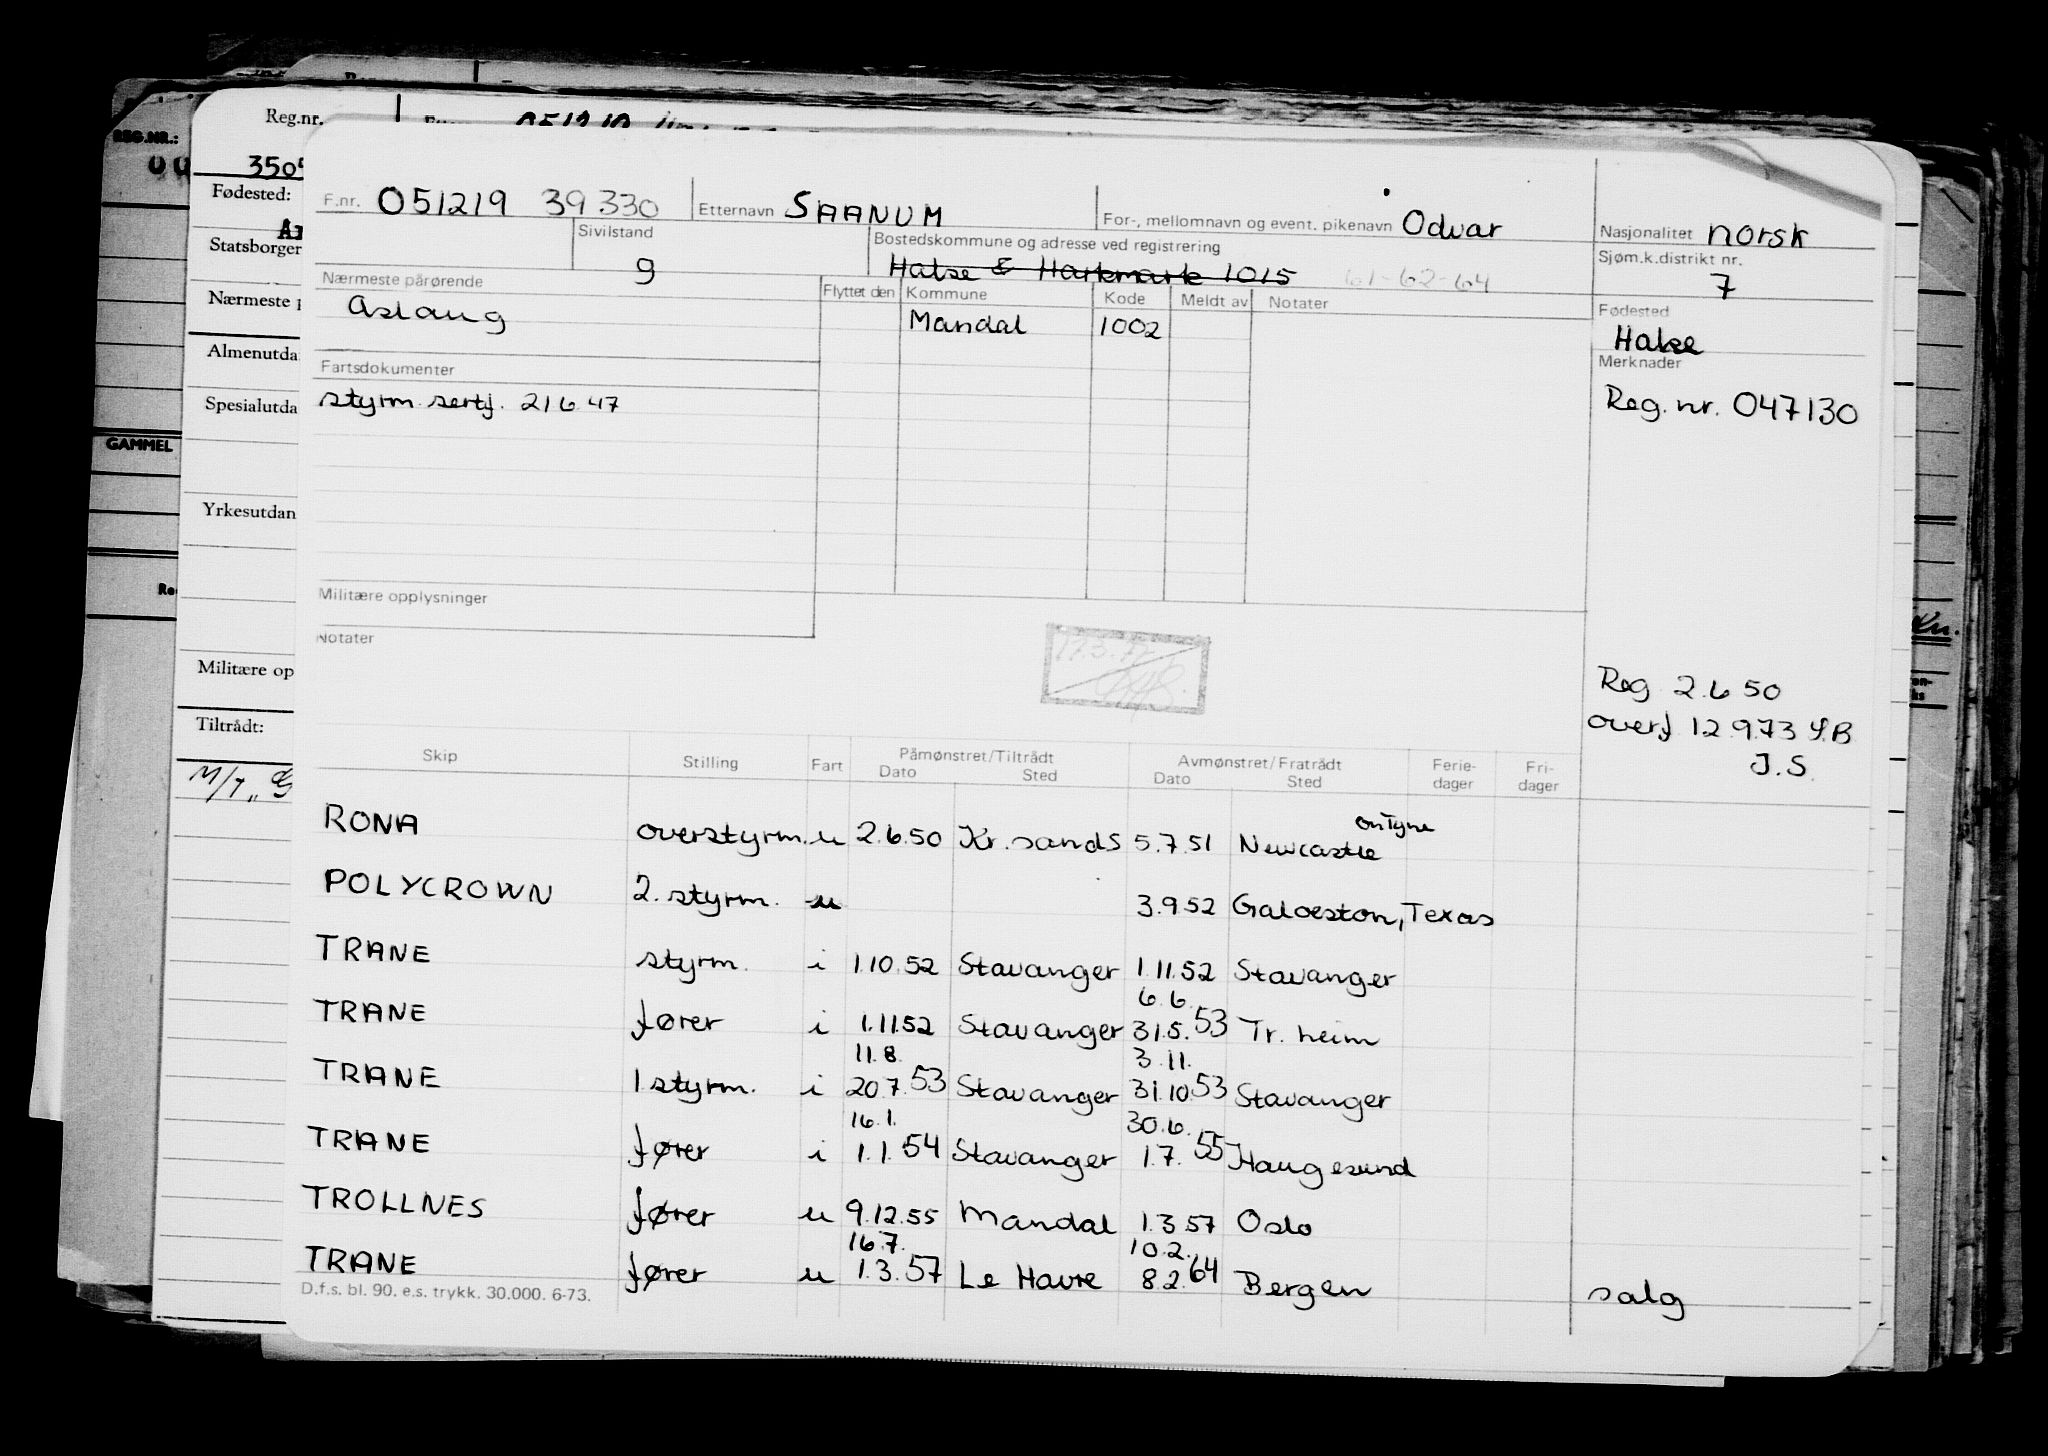 Reg.nr.
REG.NR.:
Fødested:
Statsborger
Nærmeste
Almenutda
Spesialutda
GAMMEL
Yrkesutdan
Militære op
Tiltrådt:
M/T
F.nr. 051219 39 330 Etternavn SAANUM For-, mellomnavn og event. pikenavn Odvar Nasjonalitet norsk
Sivilstand g Bostedskommune og adresse ved registrering Halse & Harkmark 1015 61-62-64 Sjøm.k.distrikt nr. 7
Nærmeste pårørende Aslaug Flyttet den Kommune Kode Meldt av Notater Fødested Halse
Mandal 1002
Merknader
Fartsdokumenter
styrm. sertf. 21 6 47 Reg. nr. 047130
Militære opplysninger
Notater
Reg 2.6 50
overf 12 9.73 S.B
J.S.
Skip Stilling Fart Påmønstret/Tiltrådt Dato Sted Avmønstret/Fratrådt Dato Sted Ferie-dager Fri-dager
RONA overstyrm. u 2.6.50 Kr. sands 5.7.51 Newcastle onTyne
POLYCROWN 2. styrm. u 3.9.52 Galveston, Texas
TRANE styrm. i 1.10.52 Stavanger 1.11.52 Stavanger
6.6.
TRANE fører i 1.11.52 Stavanger 31.5.53 Tr. heim
11.8. 3.11.
TRANE 1 styrm. i 20.7.53 Stavanger 31.10.53 Stavanger
16.1. 30.6.
TRANE fører i 1.1.54 Stavanger 1.7.55 Haugesund
TROLLNES fører u 9.12.55 Mandal 1.3.57 Oslo
16.7. 10.2.
TRANE fører u 1.3.57 Le Havre 8.2.64 Bergen salg
D.f.s. bl. 90. e.s. trykk. 30.000. 6-73.